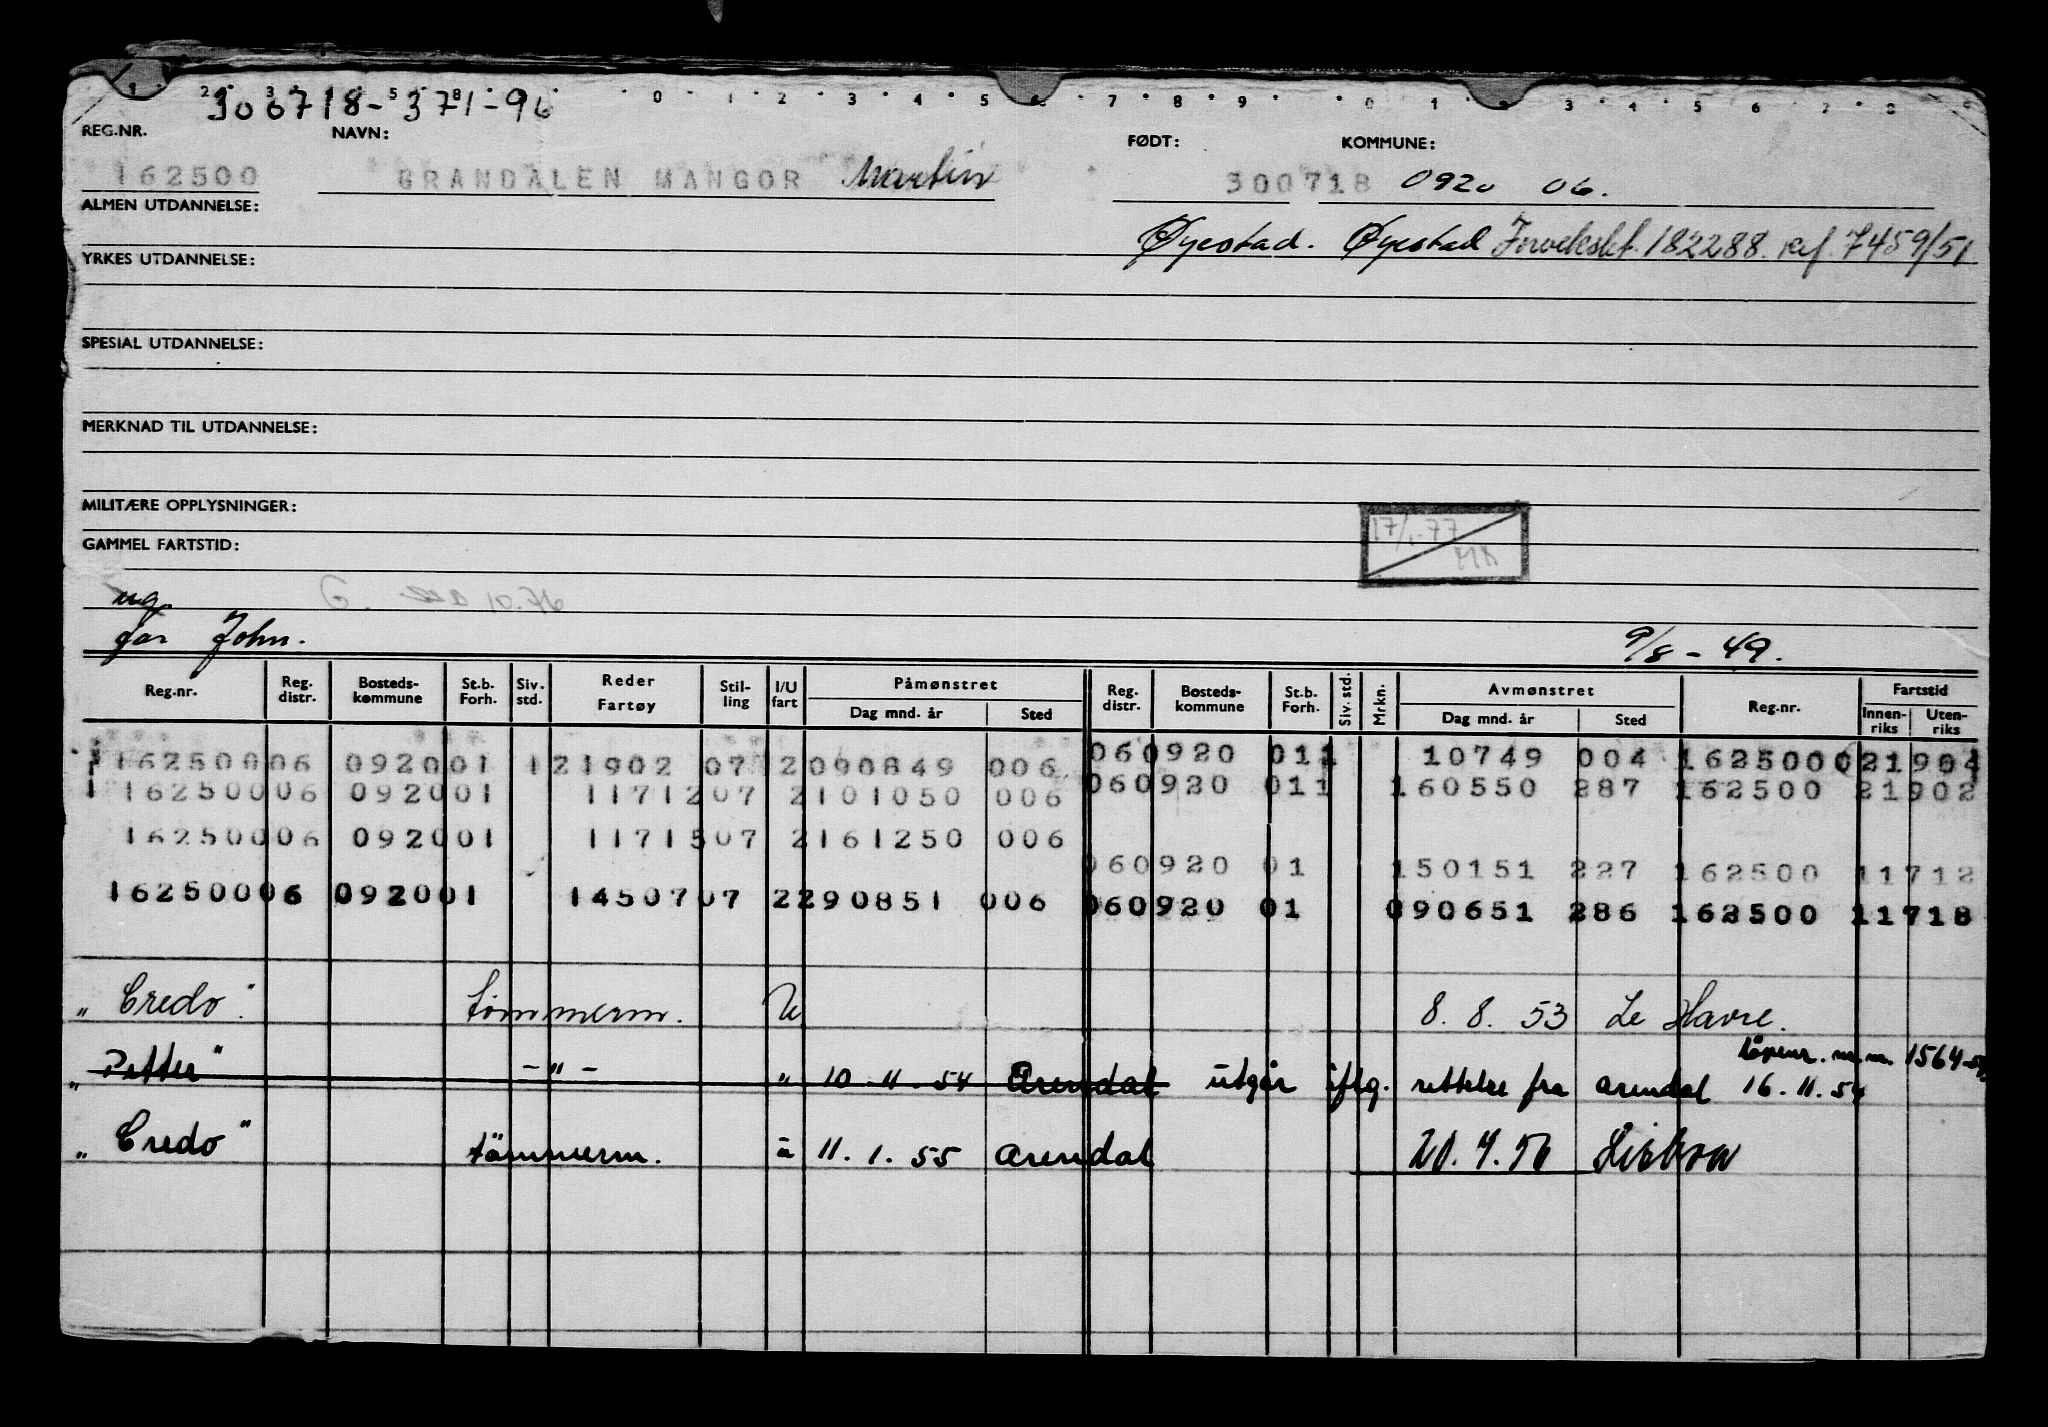 300718-371-96
REG.NR. NAVN: FØDT: KOMMUNE:
162500 GRANDALEN MANGOR Martin 300718 0920 06.
ALMEN UTDANNELSE:
Øyestad. Øyestad 182288. ref. 7459/51
YRKES UTDANNELSE:
SPESIAL UTDANNELSE:
MERKNAD TIL UTDANNELSE:
MILITÆRE OPPLYSNINGER:
17/1-77
GAMMEL FARTSTID:
ug.
far John. 9/8-49.
Reg.nr. Reg. distr. Bosteds-kommune St.b. Forh. Siv. std. Reder Fartøy Stil-ling I/U fart Påmønstret Dag mnd. år Sted Reg. distr. Bosteds-kommune St.b. Forh. Siv. std. Mrkn. Avmønstret Dag mnd. år Sted Reg.nr. Fartstid Innen-riks Uten-riks
162500 06 0920 01 1 21902 07 2 090849 006 06 0920 01 1 10749 004 162500 021904
162500 06 0920 01 11712 07 2 101050 006 06 0920 01 1 160550 287 162500 21902
162500 06 0920 01 11715 07 2 161250 006
06 0920 01 150151 227 162500 11712
162500 06 0920 01 14507 07 2 290851 006 06 0920 01 090651 286 162500 11718
"Credo". tømmerm. U 8. 8. 53 Le Havre.
1564-54
"Petter" -"- " 10 11. 54 Arendal utgår iflg. rettelse fra Arendal 16.11.54
"Credo" tømmerm. 11. 1. 55 Arendal 56 Lisboa